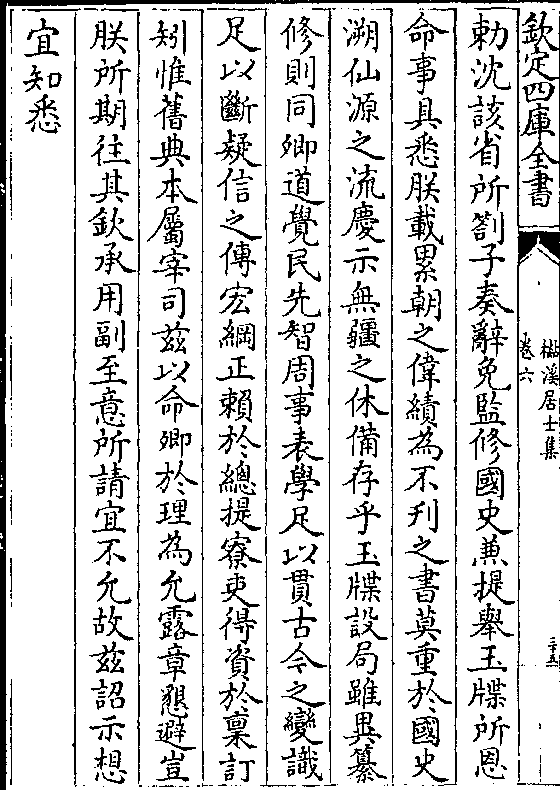 欽定四庫全書
樵溪居士集
卷六
三十五
勅沈該省所劄子奏辭免監修國史兼提舉玉牒所恩
命事具悉朕載累朝之偉績為不刊之書莫重於國史
溯仙源之流慶示無疆之休備存乎玉牒設局雖異纂
修則同卿道覺民先智周事表學足以貫古今之變識
足以斷疑信之傳宏綱正賴於總提寮吏得資於稟訂
矧惟舊典本屬宰司茲以命卿於理為允露章懇避豈
朕所期往其欽承用副至意所請宜不允故茲詔示想
宜知悉